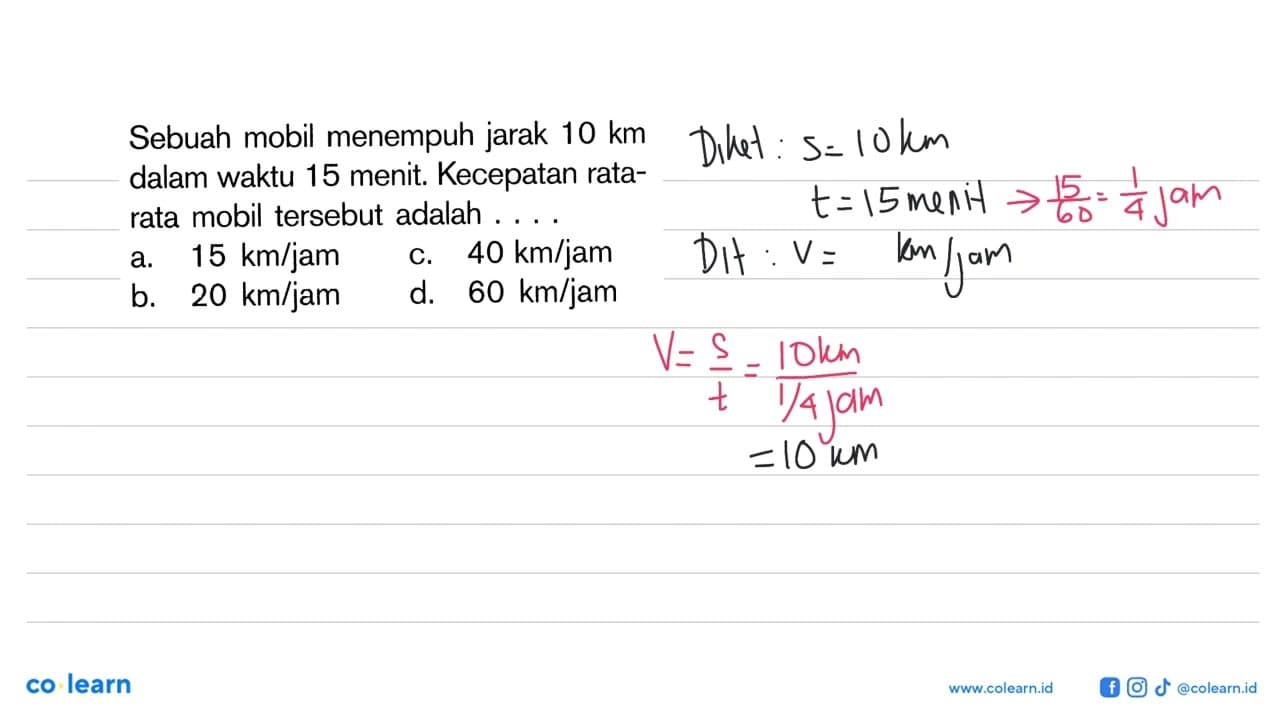 Sebuah mobil menempuh jarak 10 km
dalam waktu 15 menit. Kecepatan rata-
rata mobil tersebut adalah . . . .
a. 15 km/jam c. 40 km/jam
b. 20 km/jam d. 60 km/jam
Diket : s = 10 km
t = 15 menit → 15/60 = 1/4 jam
Dit : v = km/jam
V = s/t = 10 km / 1/4 jam
= 10 km
co learn
www.colearn.id @colearn.id